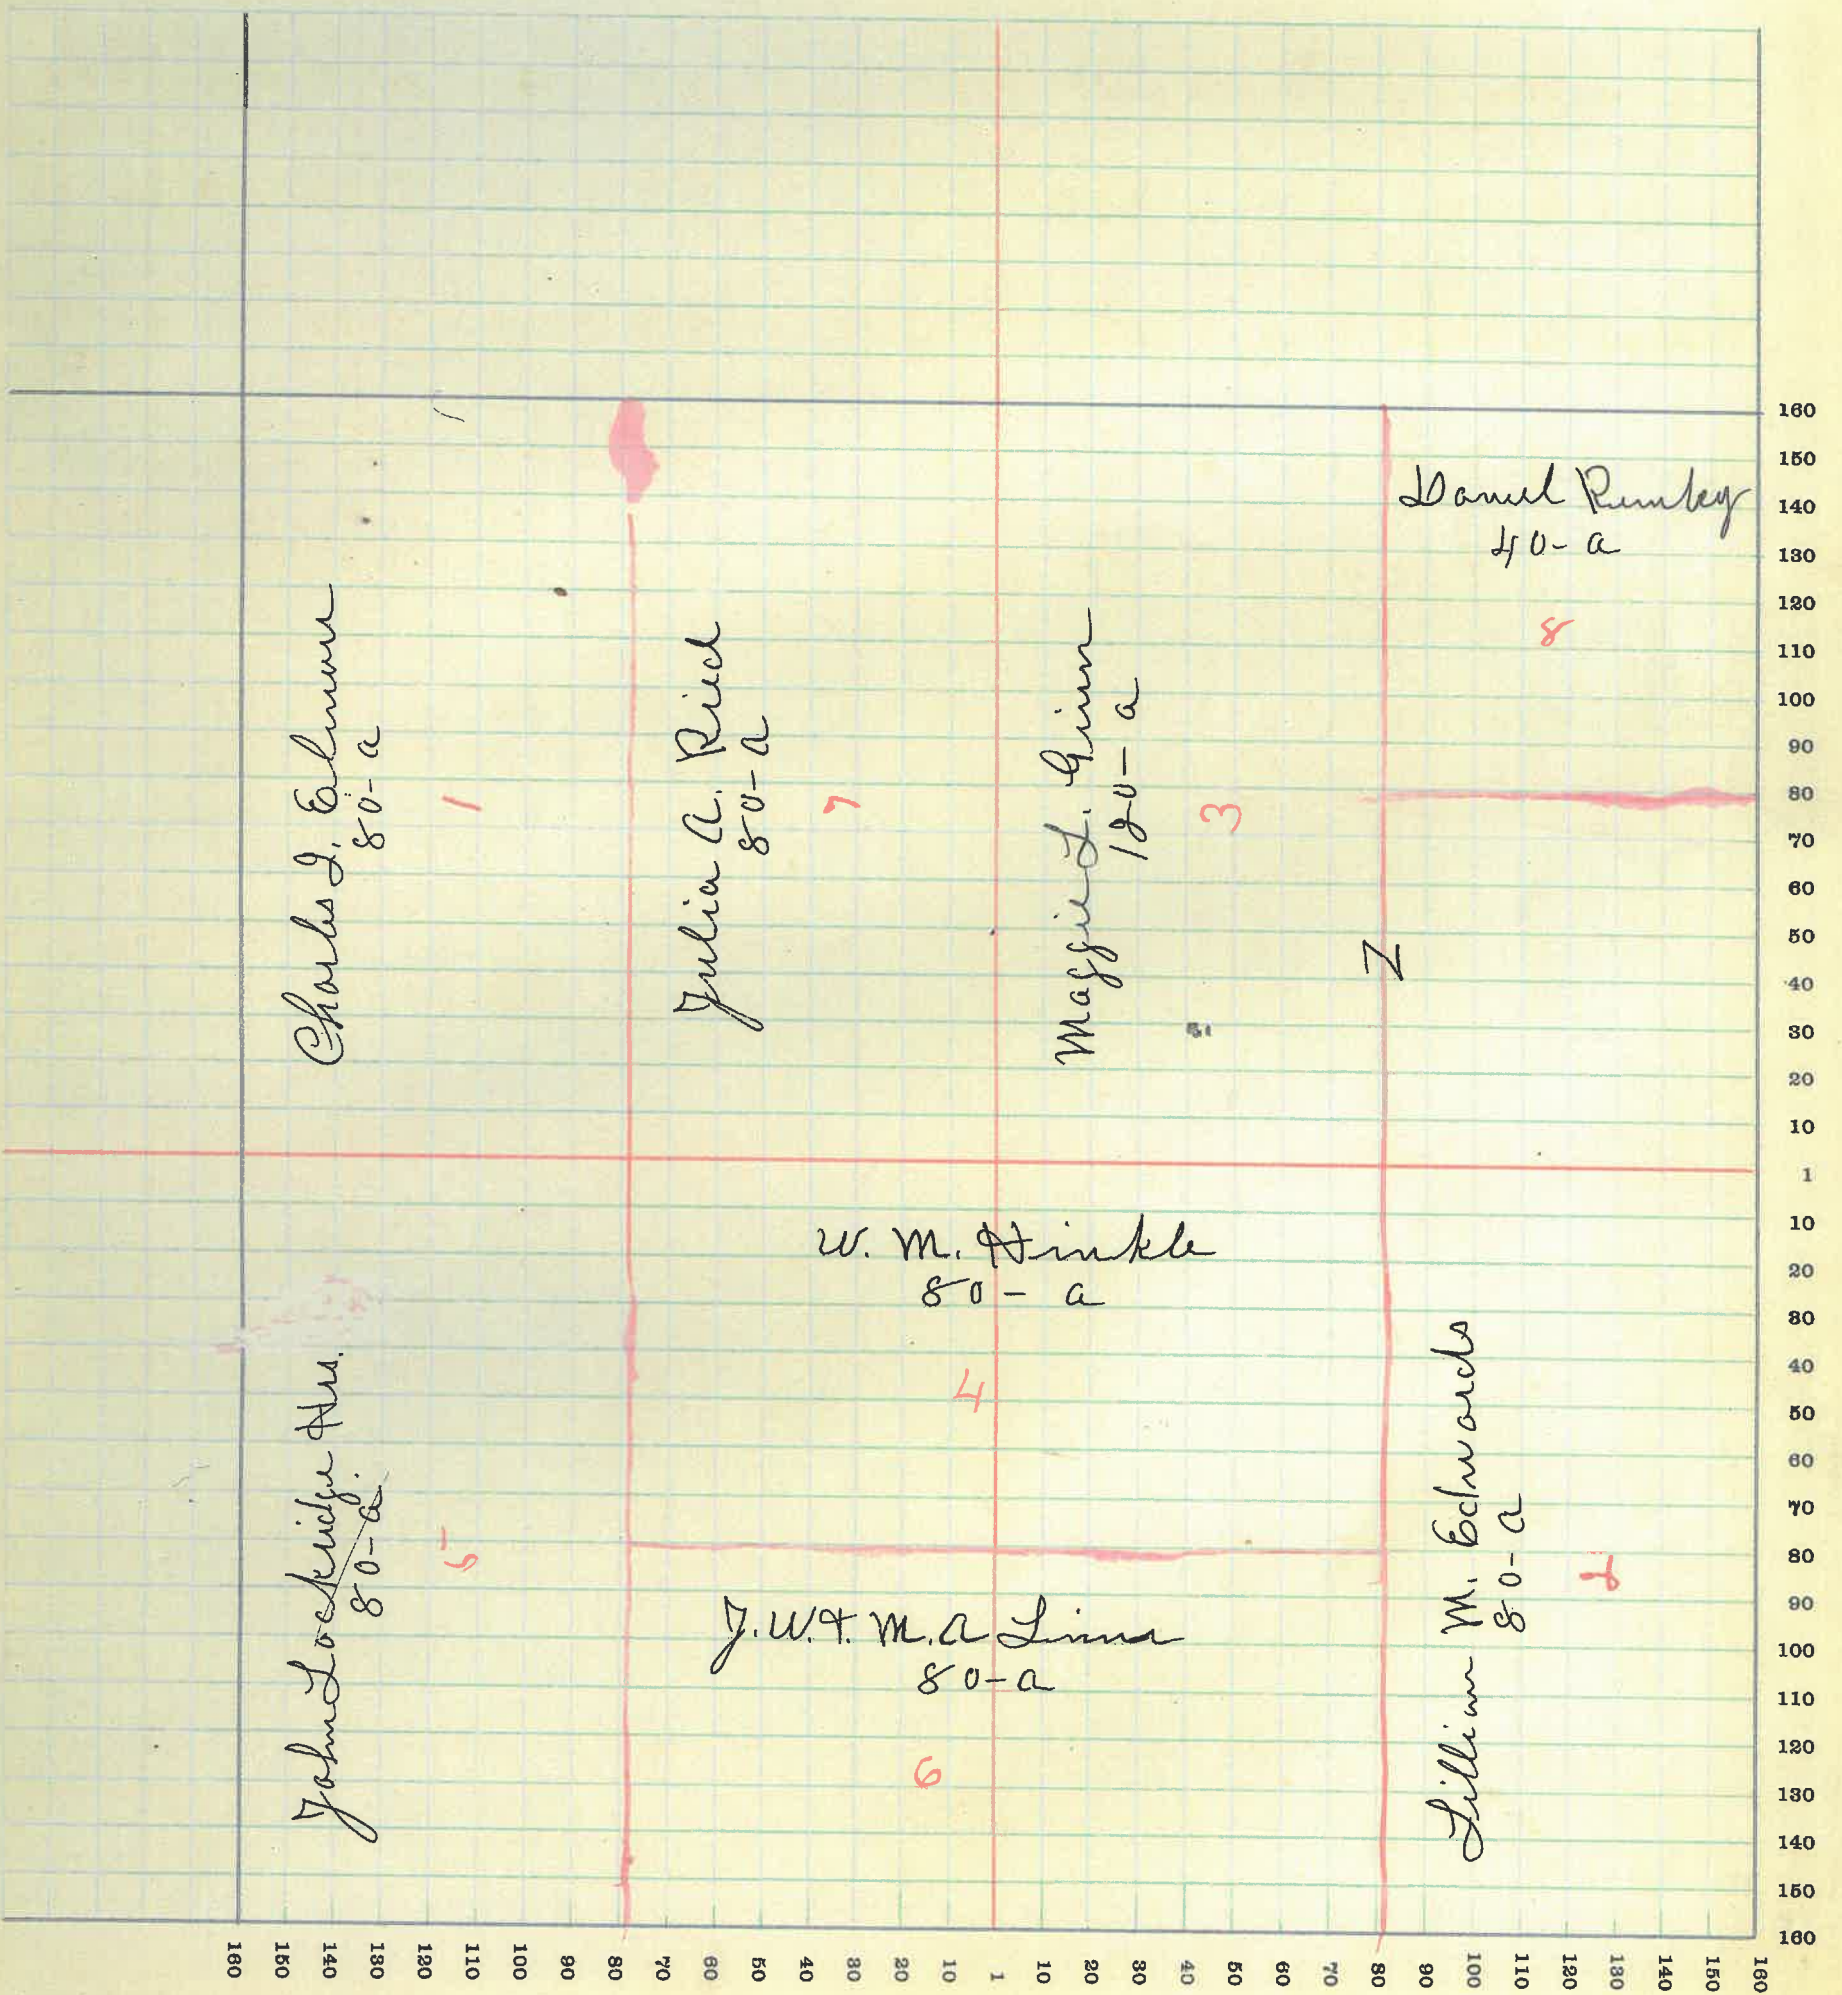 Charles I. Elmore
80-a
1
Julia A. Ried
80-a
7
Maggie L. Ginn
120-a
3
Z
Daniel
40-a
8
W. M. Hinkle
80-a
4
John Lockridge Hrs.
80-a.
5
J. W. & M. A Linn
80-a
6
Lillian M. Edwards
80-a
2
160
150
140
130
120
110
100
90
80
70
60
50
40
30
20
10
1
10
20
30
40
50
60
70
80
90
100
110
120
130
140
150
160
160 150 140 130 120 110 100 90 80 70 60 50 40 30 20 10 1 10 20 30 40 50 60 70 80 90 100 110 120 130 140 150 160